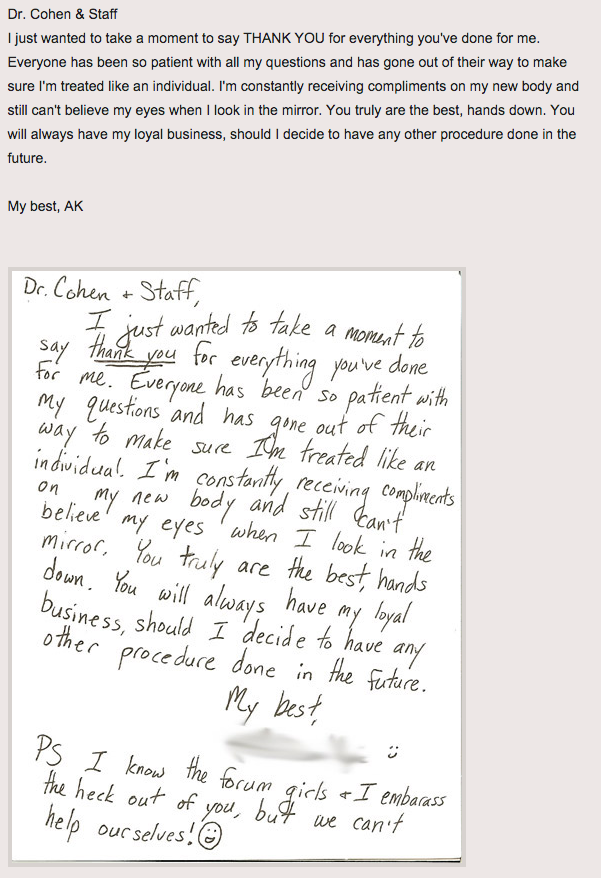 Dr. Cohen & Staff
I just wanted to take a moment to say THANK YOU for everything you've done for me.
Everyone has been so patient with all my questions and has gone out of their way to make
sure I'm treated like an individual. I'm constantly receiving compliments on my new body and
still can't believe my eyes when I look in the mirror. You truly are the best, hands down. You
will always have my loyal business, should I decide to have any other procedure done in the
future.
My best, AK
Dr. Cohen + Staff,
I just wanted to take a moment to
say thank you for everything you've done
for me. Everyone has been so patient with
my questions and has gone out of their
way to make sure I'm treated like an
individual. I'm constantly receiving compliments
on my new body and still can't
believe my eyes when I look in the
mirror. You truly are the best, hands
down. You will always have my loyal
business, should I decide to have any
other procedure done in the future.
My best,
:)
PS I know the forum girls + I embarass
the heck out of you, but we can't
help ourselves!